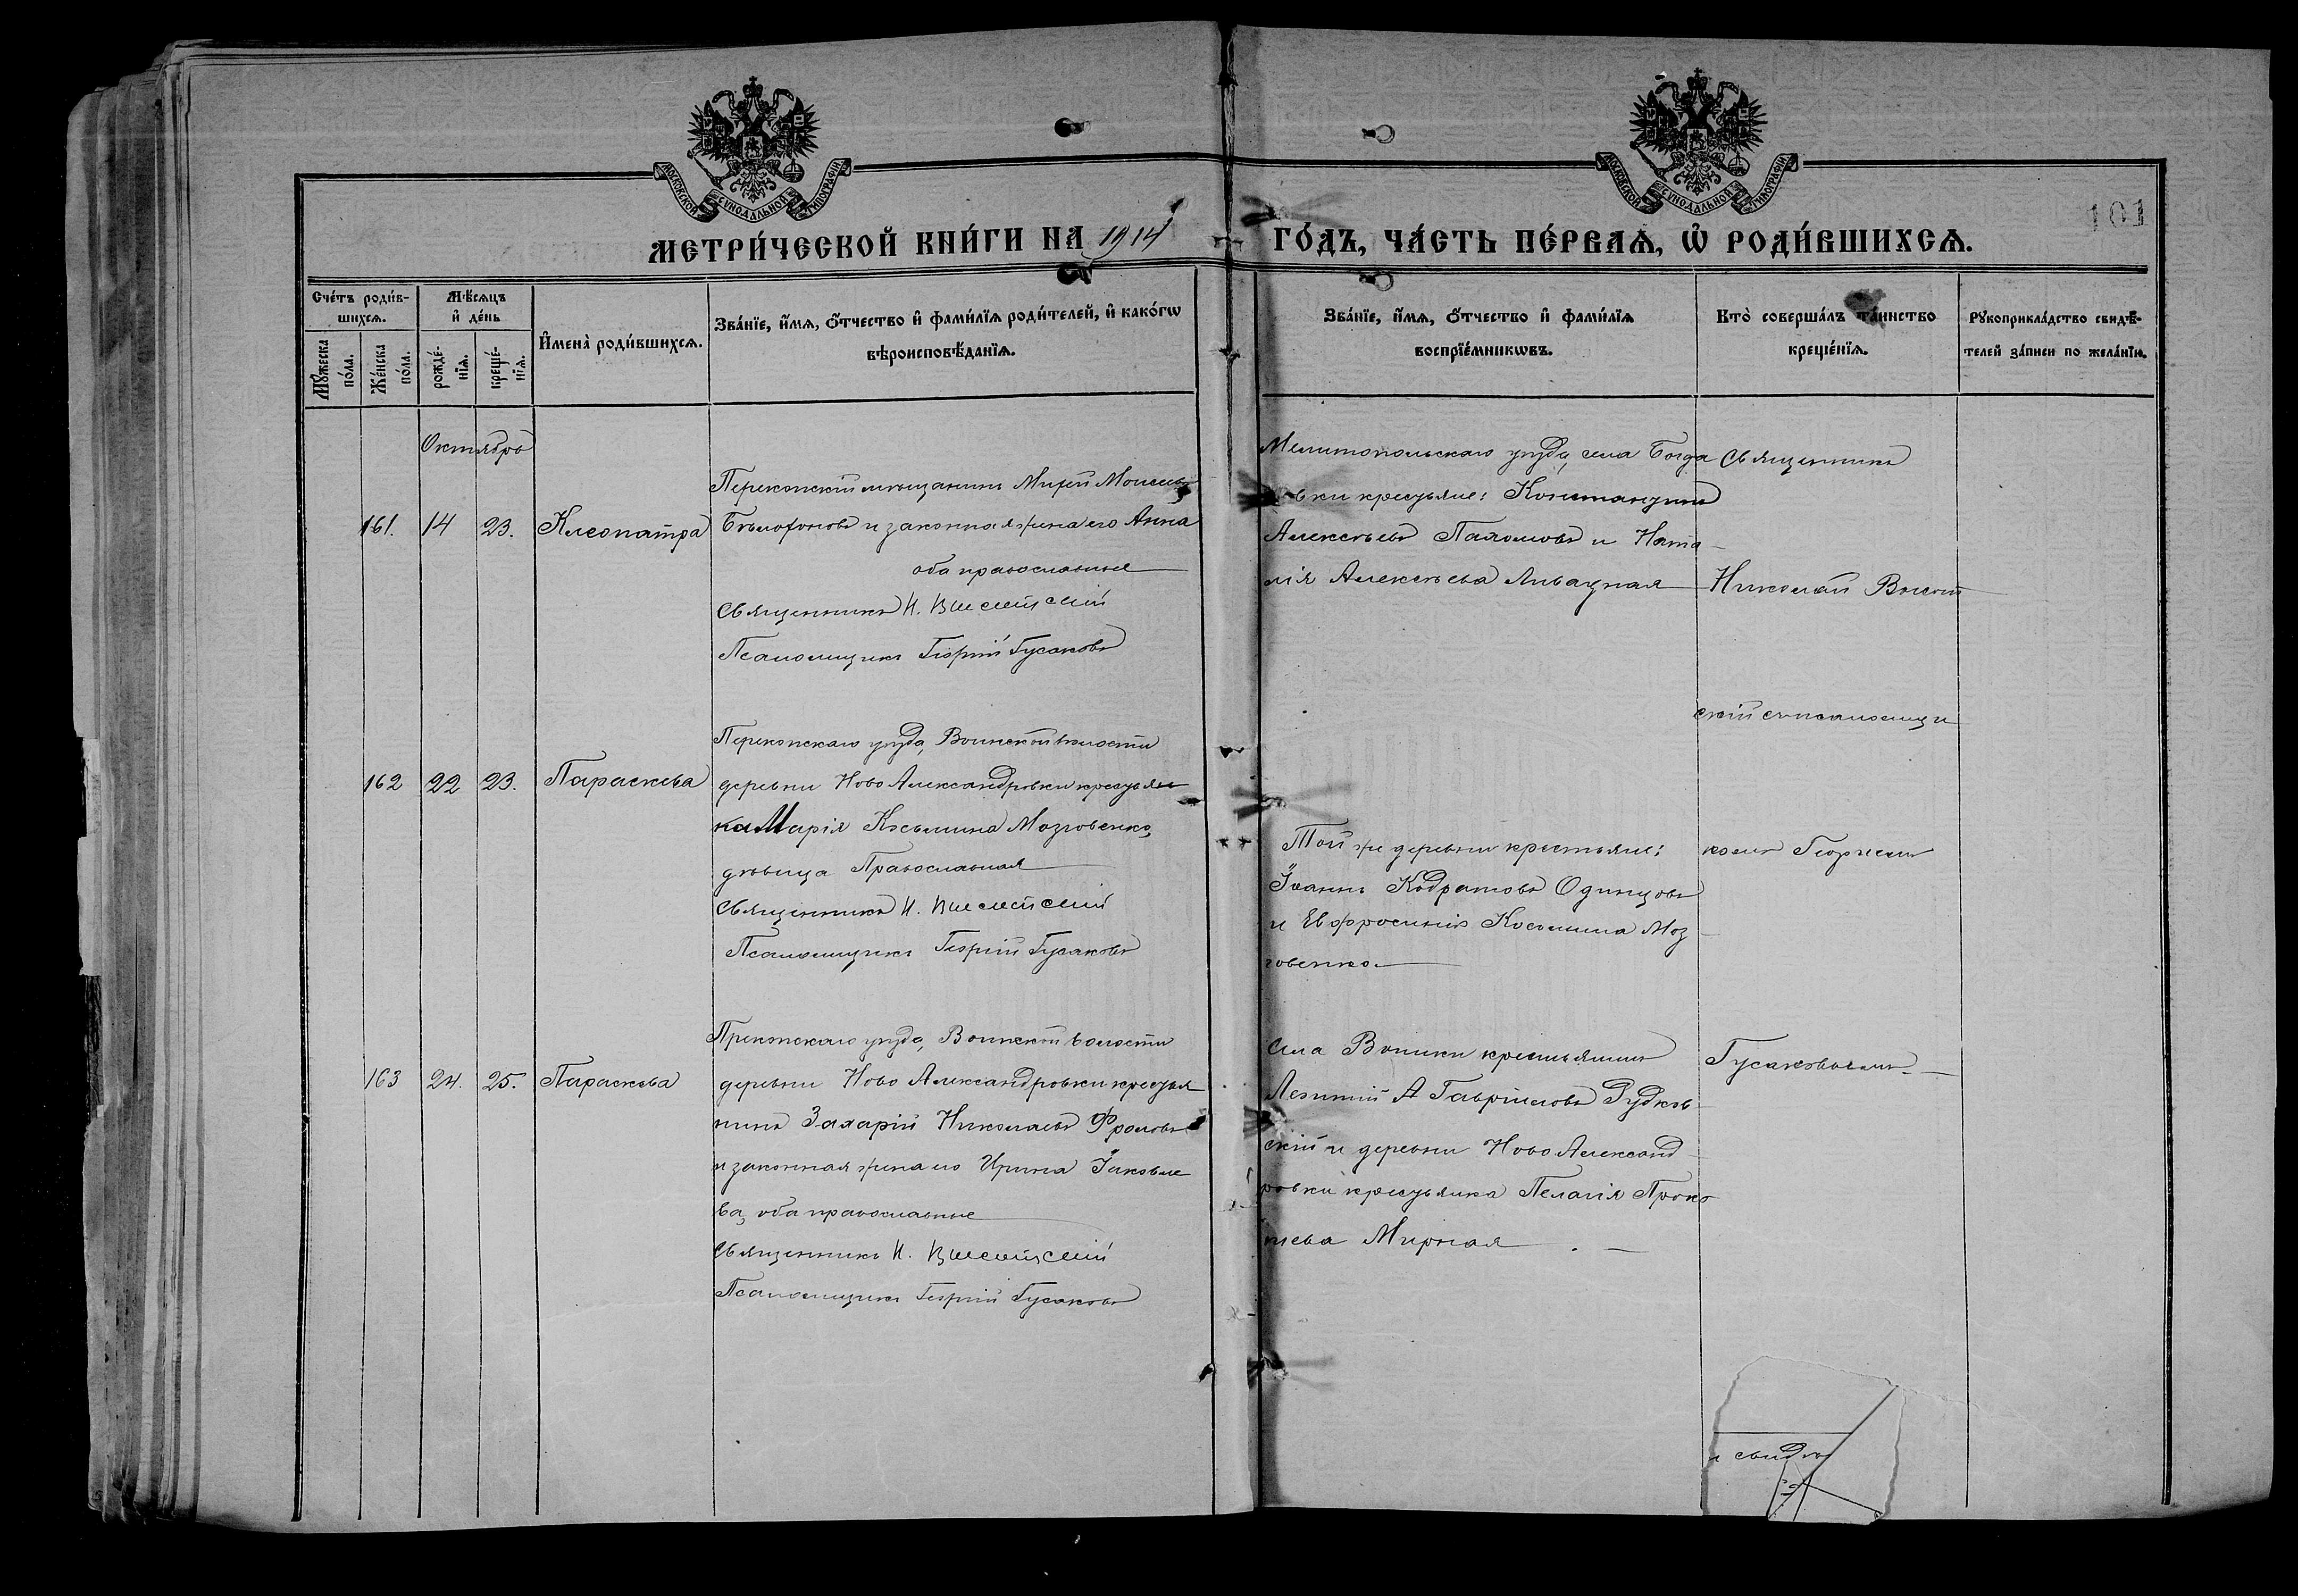 МОСКОВСКОЙ СѴНОДАЛЬНОЙ ТИПОГРАФІИ
МОСКОВСКОЙ СѴНОДАЛЬНОЙ ТИПОГРАФІИ
101
МЕТРИ́ЧЕСКОЙ КНИ́ГИ НА 1914 ГО́ДЪ, ЧА́СТЬ ПЕ́РВАѦ, Ѡ҆ РОДИ́ВШИХСѦ.
Сче́тъ роди́в-
шихсѧ.
Мꙋ́жеска по́ла.
Же́нска по́ла.
Мѣ́сѧцъ
и҆ де́нь
рожде́-
нїѧ.
креще́-
нїѧ.
И҆мена̀ роди́вшихсѧ.
Зва́нїе, и҆́мѧ, ѻ҆́тчество и҆ фами́лїѧ роди́телей, и҆ како́гѡ
вѣроисповѣ́данїѧ.
Зва́нїе, и҆́мѧ, ѻ҆́тчество и҆ фами́лїѧ
воспрїе́мникѡвъ.
Кто̀ соверша́лъ та́инство
креще́нїѧ.
Рꙋкоприкла́дство свидѣ́-
телей за́писи по жела́нїю.
Октябрь
161. 14 23. Клеопатра
Перекопскій мѣщанинъ Моисеевъ
и законная жена его Анна
оба православные
Священникъ Н. Высотскій
Псаломщикъ Георгій Гусаковъ
Мелитопольскаго уѣзда, села Богда
вки крестьяне: Константинъ
Алексѣевъ Пахомовъ и Ната
лія Алексѣева
Священникъ
Николай Высот
162 22 23. Параскева
Перекопскаго уѣзда, Воинской волости
деревни Ново Александровки крестьян
ка Марія Косьмина Мозговенко,
дѣвица Православная
Священникъ Н. Высотскій
Псаломщикъ Георгій Гусаковъ
Той же деревни крестьяне:
Іоаннъ Кодратовъ Одинцовъ
и Евфросинія Косьмина Моз
говенко.
скій съ псаломщи
комъ Георгіемъ
163 24. 25. Параскева
Прекопскаго уѣзда, Воинской волости
деревни Ново Александровки крестья
нинъ Захарій Николаевъ Фроловъ
и законная жена его Ирина Іаковле
ва, оба православные
Священникъ Н. Высотскій
Псаломщикъ Георгій Гусаковъ
Села Воинки крестьянинъ
Гавріиловъ Рудков
скій и деревни Ново Александ
ровки крестьянка Пелагія Проко
піева Мирная
Гусаковымъ.
и свидѣ